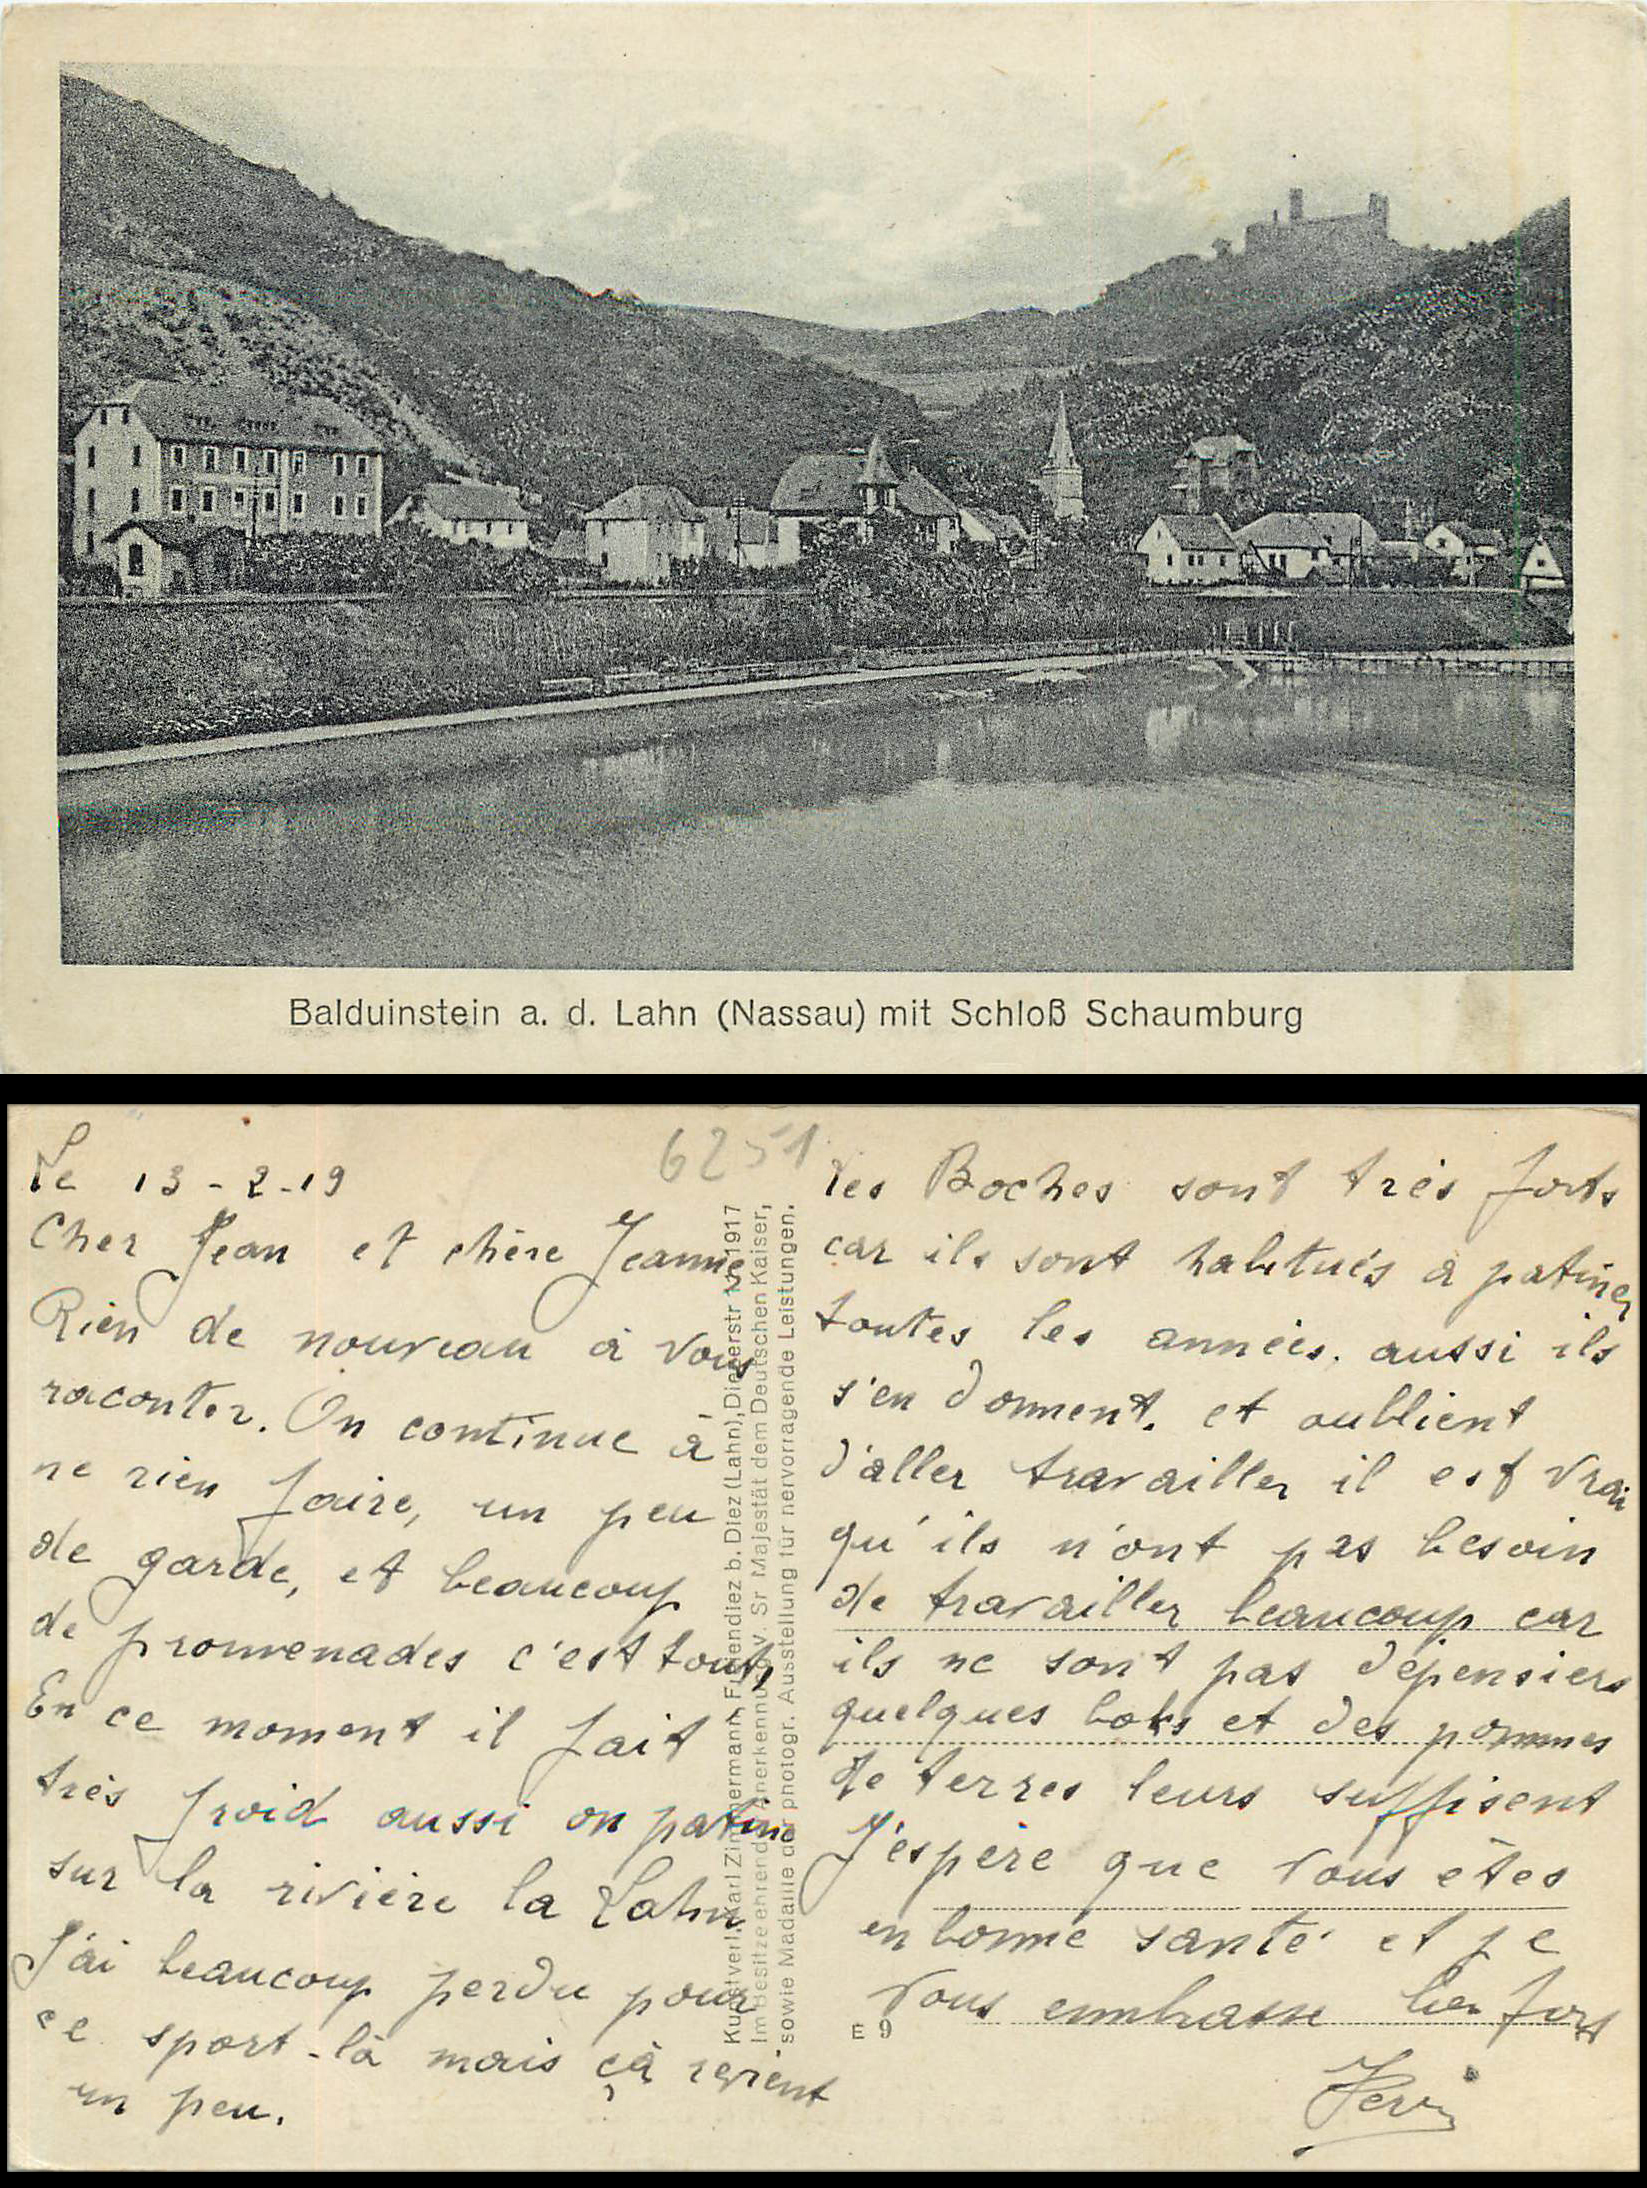 Balduinstein a. d. Lahn (Nassau) mit Schloß Schaumburg
6251
Le 13-2-19
Cher Jean et chère Jeanne
Rien de nouveau à vous
raconter. On continue à
ne rien faire, un peu
de garde, et beaucoup
de promenades c'est tout,
En ce moment il fait
très froid aussi on patine
sur la rivière la Lahn
J'ai beaucoup perdu pour
ce sport-là mais çà revient
un peu.
Kunstverl. Karl Zimmermann, Freiendiez b. Diez (Lahn), Diezerstr 1917
Im Besitze ehrender Anerkennung v. Sr Majestät dem Deutschen Kaiser,
sowie Madaille der photogr. Ausstellung für nervorragende Leistungen.
les Boches sont très forts
car ils sont habitués à patiner
toutes les années. aussi ils
s'en donnent. et oublient
d'aller travailler il est vrai
qu'ils n'ont pas besoin
de travailler beaucoup car
ils ne sont pas dépensiers
quelques boks et des pommes
de terres leurs suffisent
J'espère que vous êtes
en bonne santé et je
vous embrasse bien fort
E 9